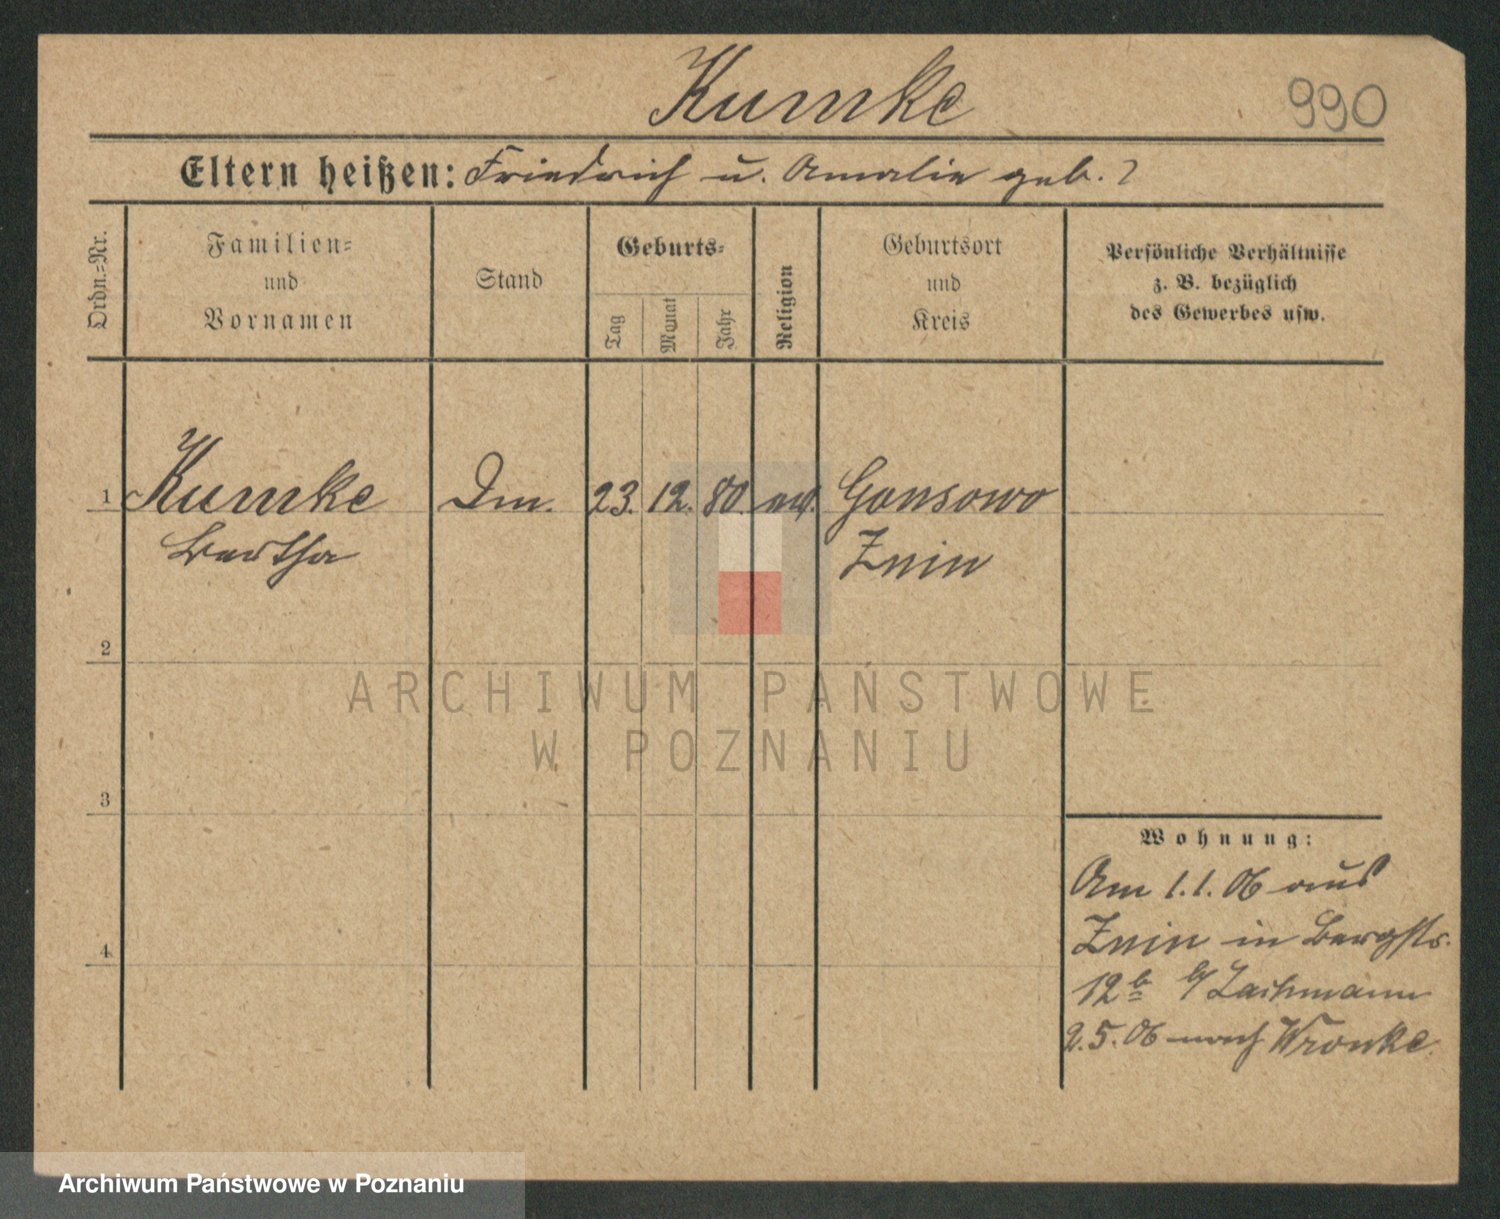 Kumke
990
Eltern heißen: Friedrich u. Amalie geb. ?
Ordn.=Nr.
Familien=
und
Vornamen
Stand
Geburts=
Tag
Monat
Jahr
Religion
Geburtsort
und
Kreis
Persönliche Verhältnisse
z. B. bezüglich
des Gewerbes usw.
1 Kumke Dm. 23. 12. 80. ev. Gonsowo
Bertha Znin
2
ARCHIWUM PAŃSTWOWE
W POZNANIU
3
Wohnung:
Am 1.1.06 aus
Znin in Bergstr.
4
12b b/ Lachmann
2.5.06 nach Wronke.
Archiwum Państwowe w Poznaniu